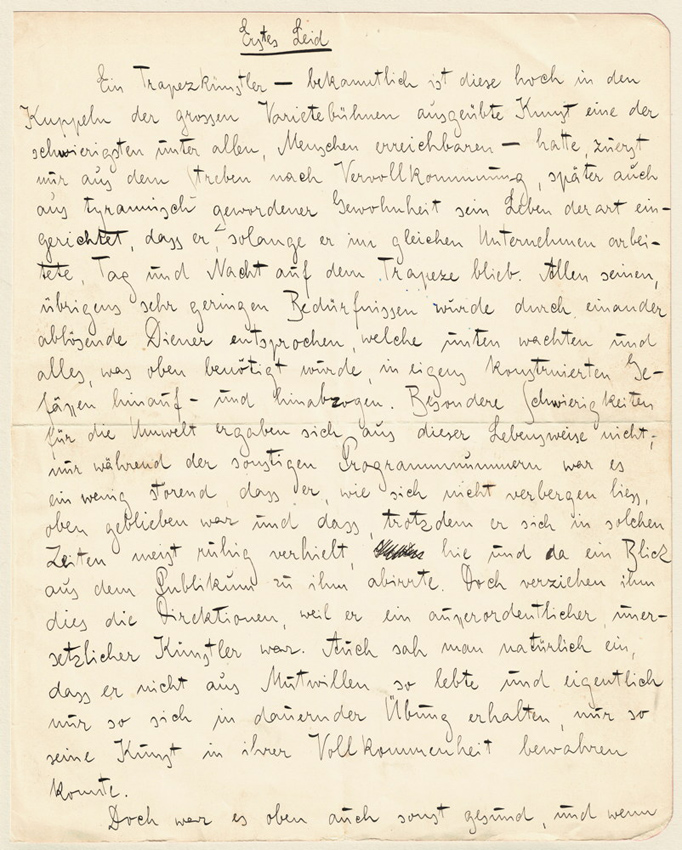 Erstes Leid
Ein Trapezkünstler – bekanntlich ist diese hoch in den
Kuppeln der grossen Varietebühnen ausgeübte Kunst eine der
schwierigsten unter allen, Menschen erreichbaren – hatte, zuerst
nur aus dem Streben nach Vervollkommnung, später auch
aus tyrannisch gewordener Gewohnheit sein Leben derart ein-
gerichtet, dass er, solange er im gleichen Unternehmen arbei-
tete, Tag und Nacht auf dem Trapeze blieb. Allen seinen,
übrigens sehr geringen Bedürfnissen wurde durch einander
ablösende Diener entsprochen, welche unten wachten und
alles, was oben benötigt wurde, in eigens konstruierten Ge-
fässen hinauf- und hinabzogen. Besondere Schwierigkeiten
für die Umwelt ergaben sich aus dieser Lebensweise nicht;
nur während der sonstigen Programmnummern war es
ein wenig störend, dass er, wie sich nicht verbergen liess,
oben geblieben war und dass, trotzdem er sich in solchen
Zeiten meist ruhig verhielt, hie und da ein Blick
aus dem Publikum zu ihm abirrte. Doch verziehen ihm
dies die Direktionen, weil er ein ausserordentlicher, uner-
setzlicher Künstler war. Auch sah man natürlich ein,
dass er nicht aus Mutwillen so lebte und eigentlich
nur so sich in dauernder Übung erhalten, nur so
seine Kunst in ihrer Vollkommenheit bewahren
konnte.
Doch war es oben auch sonst gesund, und wenn